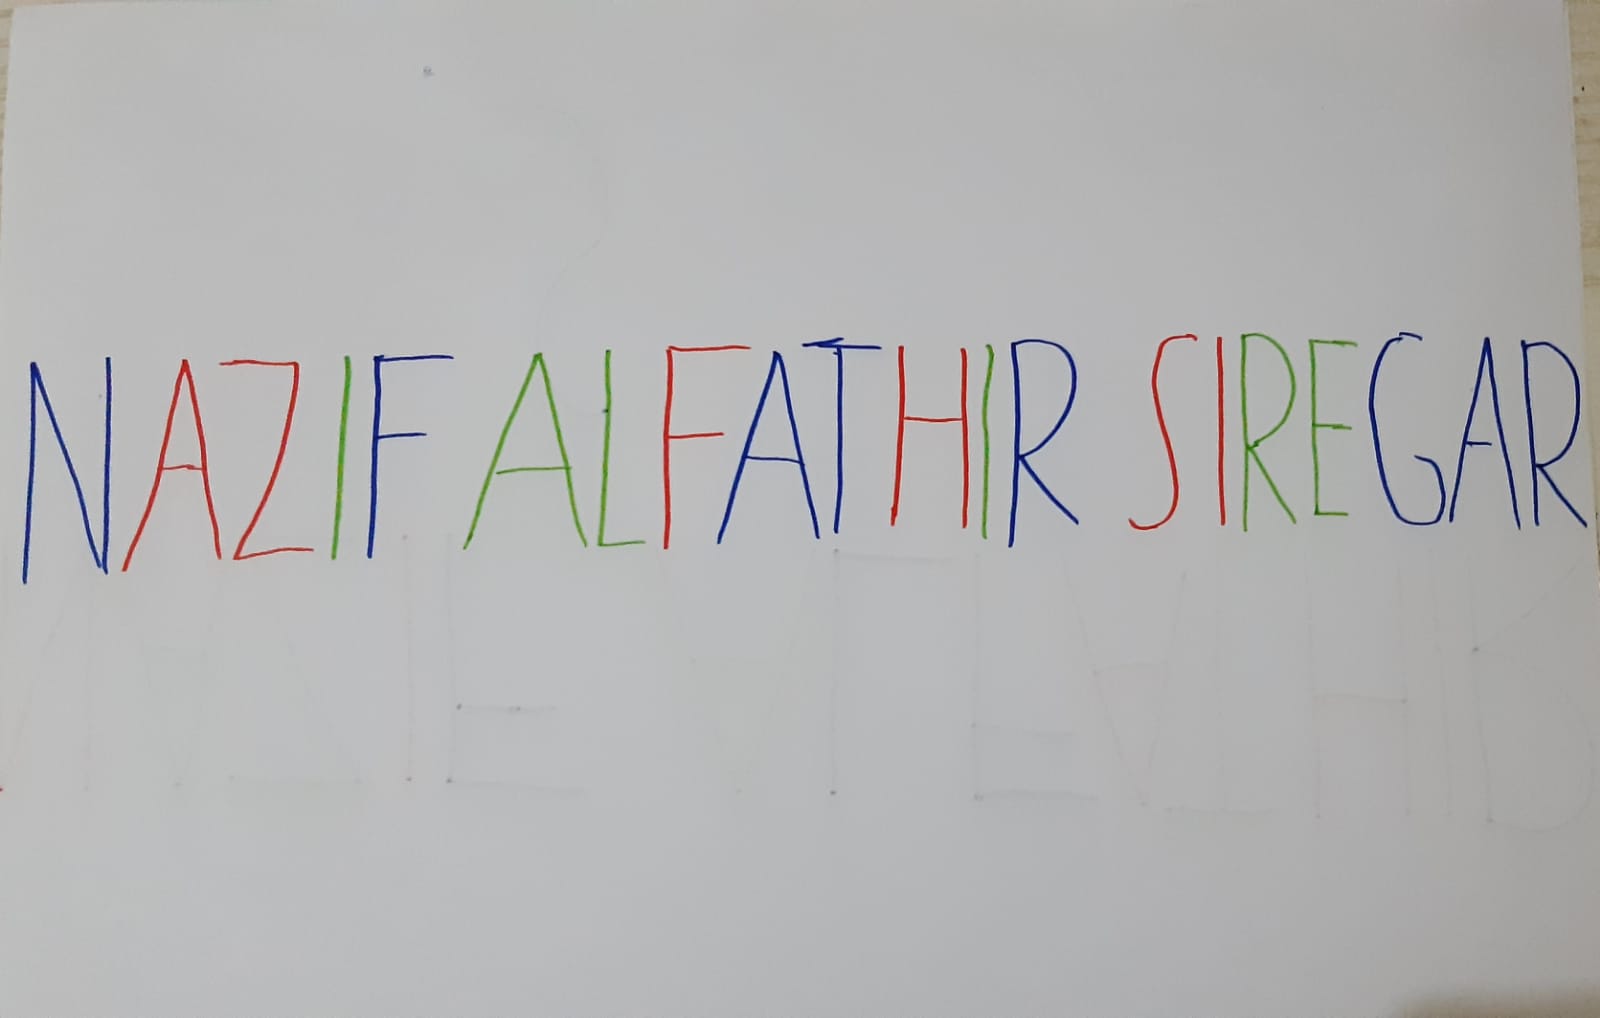 NAZIF ALFATHIR SIREGAR